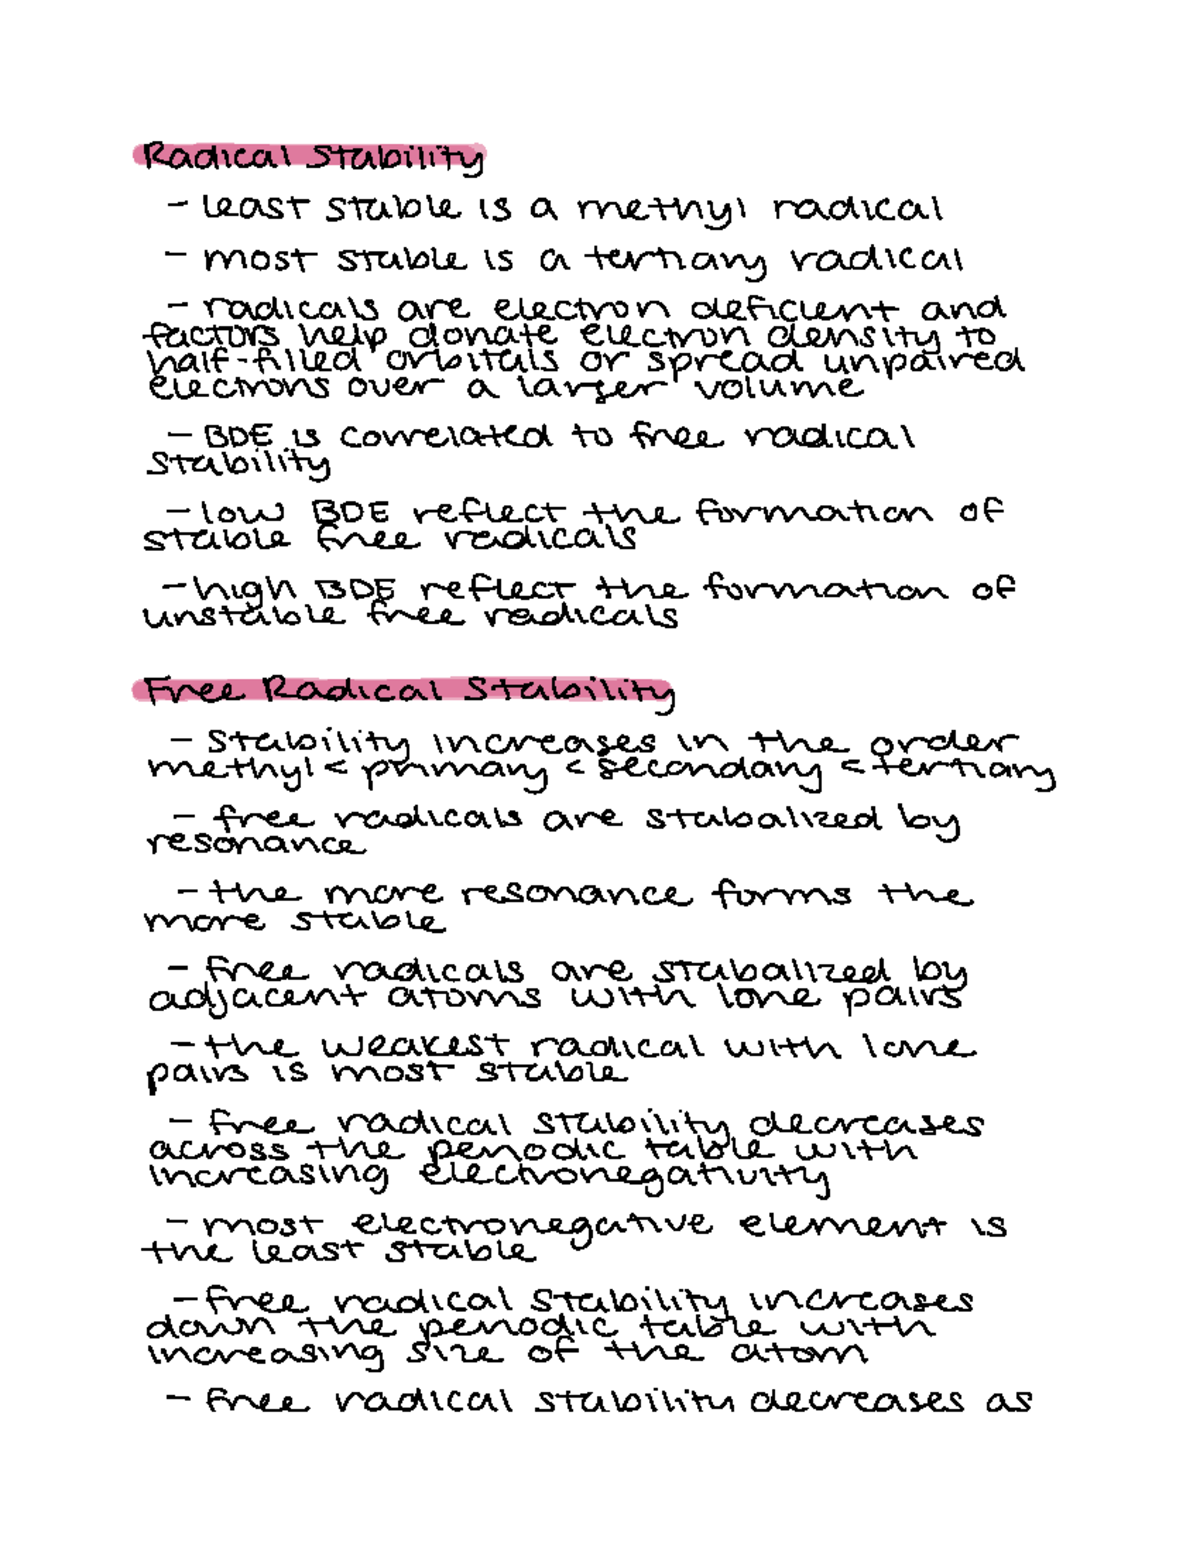 Radical Stability
- least stable is a methyl radical
- most stable is a tertiary radical
- radicals are electron deficient and
factors help donate electron density to
half-filled orbitals or spread unpaired
electrons over a larger volume
- BDE is correlated to free radical
stability
- low BDE reflect the formation of
stable free radicals
- high BDE reflect the formation of
unstable free radicals
Free Radical Stability
- Stability increases in the order
methyl < primary < secondary < tertiary
- free radicals are stabalized by
resonance
- the more resonance forms the
more stable
- free radicals are stabalized by
adjacent atoms with lone pairs
- the weakest radical with lone
pairs is most stable
- free radical stability decreases
across the periodic table with
increasing electronegativity
- most electronegative element is
the least stable
- free radical stability increases
down the periodic table with
increasing size of the atom
- free radical stability decreases as